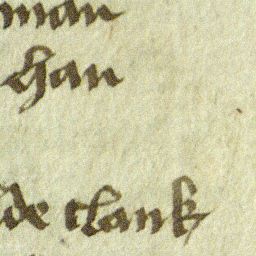 man
han
de clank